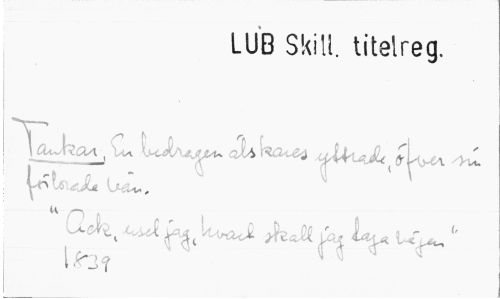 LUB Skill. titelreg.
Tankar, En bedragen älskares yttrade, öfver sin
förlorade vän.
"Ack, usel jag, hvart skall jag taga vägen"
1839